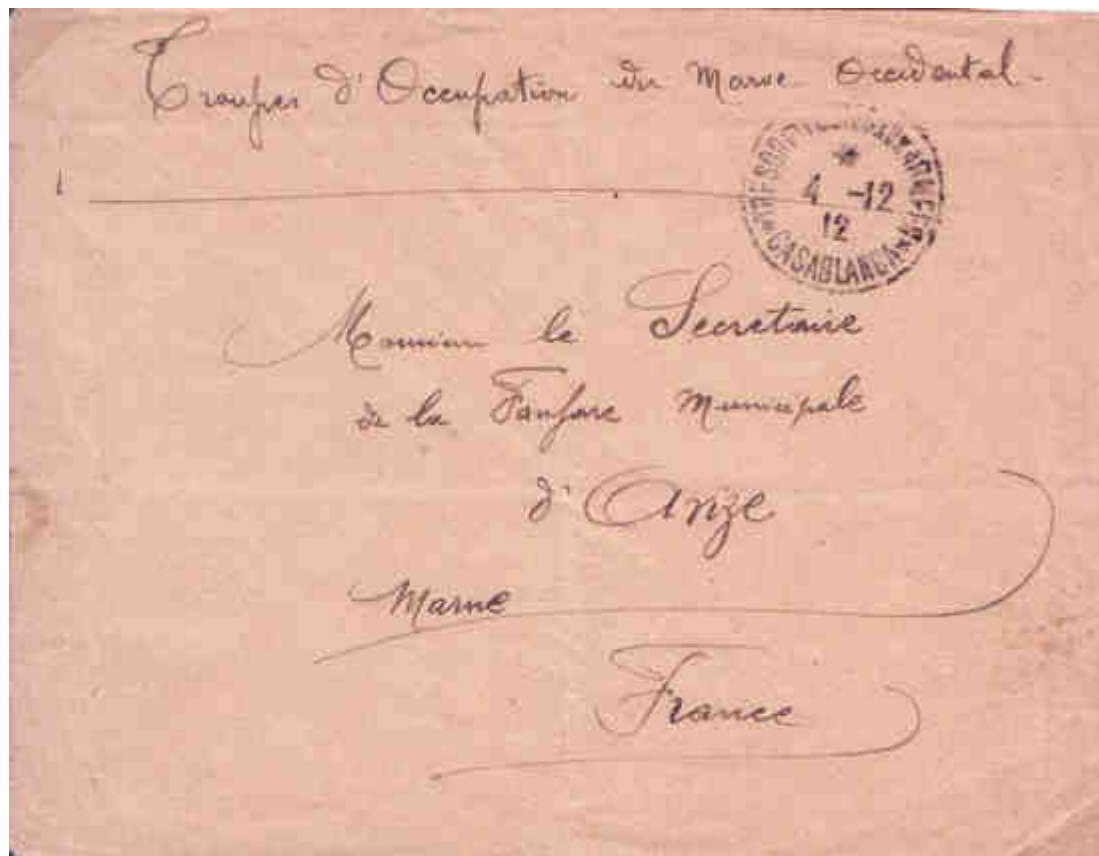 Troupes d'Occupation du Maroc Occidental -
TRESOR ET POSTES AUX ARMEES
*
4 -12
12
*CASABLANCA*
Monsieur le Secretaire
de la Fanfare Municipale
d'Anze
Marne
France